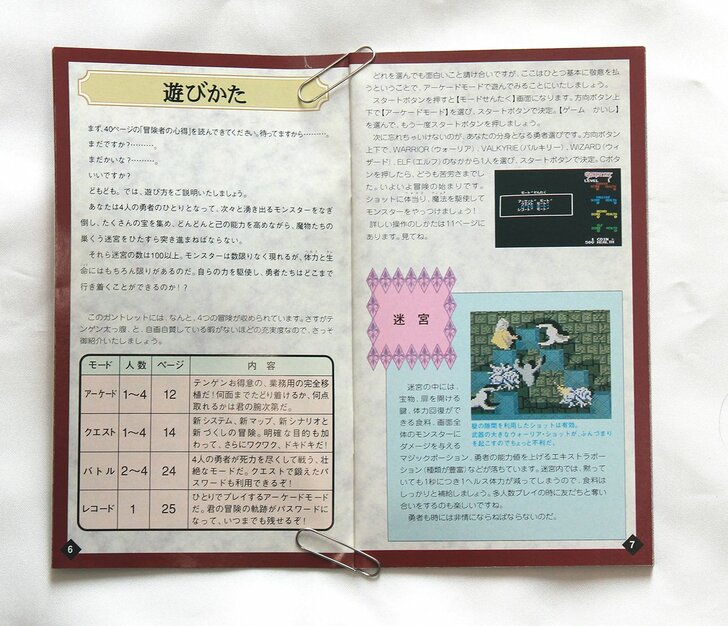 遊びかた
まず、40ページの「冒険者の心得」を読んできてください。待ってますから………。
まだですか?………。
まだかいな?………。
いいですか?
どもども。では、遊び方をご説明いたしましょう。
あなたは4人の勇者のひとりとなって、次々と湧き出るモンスターをなぎ
倒し、たくさんの宝を集め、どんどんと己の能力を高めながら、魔物たちの
巣くう迷宮をひたすら突き進まねばならない。
それら迷宮の数は100以上。モンスターは数限りなく現れるが、体力と生
命にはもちろん限りがあるのだ。自らの力を駆使し、勇者たちはどこまで
行き着くことができるのか!?
このガントレットには、なんと、4つの冒険が収められています。さすがテ
ンゲン太っ腹、と、自画自賛している暇がないほどの充実度なので、さっそ
く御紹介いたしましょう。
モード 人数 ページ 内容
アーケード 1〜4 12 テンゲンお得意の、業務用の完全移
植だ!何面までたどり着けるか、何点
取れるかは君の腕次第だ。
クエスト 1〜4 14 新システム、新マップ、新シナリオと
新づくしの冒険。明確な目的も加
わって、さらにワクワク、ドキドキだ!
バトル 2〜4 24 4人の勇者が死力を尽くして戦う、壮
絶なモードだ。クエストで鍛えたパ
スワードも利用できるぞ!
レコード 1 25 ひとりでプレイするアーケードモード
だ。君の冒険の軌跡がパスワードに
なって、いつまでも残せるぞ!
6
どれを選んでも面白いこと請け合いですが、ここはひとつ基本に敬意を払
うということで、アーケードモードで遊んでみることにいたしましょう。
スタートボタンを押すと【モードせんたく】画面になります。方向ボタン上
下で【アーケードモード】を選び、スタートボタンで決定。【ゲーム かいし】
を選んで、もう一度スタートボタンを押しましょう。
次に忘れちゃいけないのが、あなたの分身となる勇者選びです。方向ボタン
上下で、WARRIOR(ウォーリア)、VALKYRIE(バルキリー)、WIZARD(ウィ
ザード)、ELF(エルフ)のなかから1人を選び、スタートボタンで決定。Cボタ
ンを押したら、どうも苦労さまでし
た。いよいよ冒険の始まりです。
ショットに体当り、魔法を駆使して
モンスターをやっつけましょう!
詳しい操作のしかたは11ページに
あります。見てね。
モードせんたく
LEVEL 1
迷宮
迷宮の中には、
宝物、扉を開ける
鍵、体力回復がで
きる食料、画面全
体のモンスターに
ダメージを与える
マジックポーション、勇者の能力値を上げるエキストラポー
ション(種類が豊富)などが落ちています。迷宮内では、黙って
いても1秒につき1ヘルス体力が減ってしまうので、食料は
しっかりと補給しましょう。多人数プレイの時に友だちと奪い
合いをするのも楽しいですね。
勇者も時には非情にならねばならないのだ。
壁の隙間を利用したショットは有効。
武器の大きなウォーリア・ショットがふんづまり
を起こすのでちょっと不利だ。
7